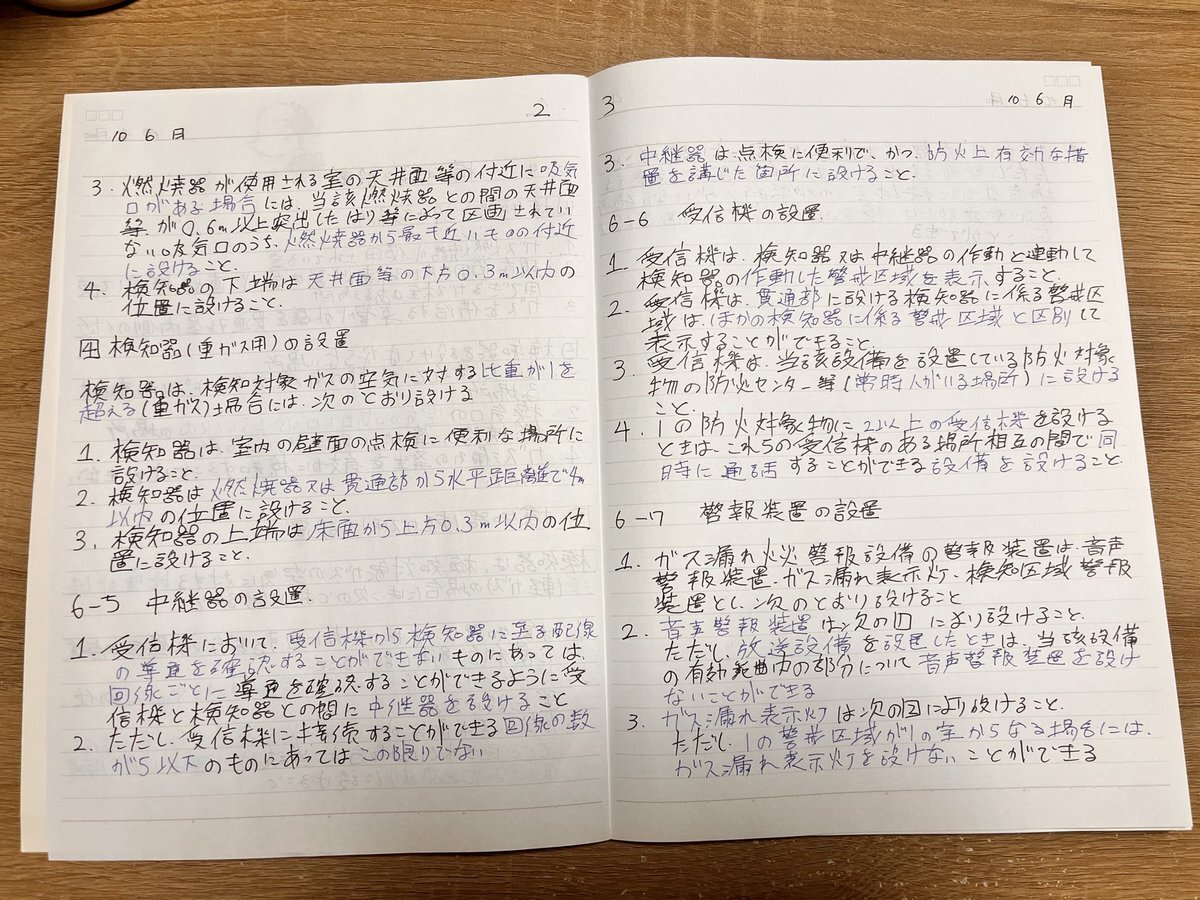 10 6 月
2
3. 燃焼器が使用される室の天井面等の付近に吸気
口がある場合には、当該燃焼器との間の天井面
等が0.6m以上突出したはり等によって区画されてい
ない吸気口のうち、燃焼器から最も近いものの付近
に設けること。
4. 検知器の下端は天井面等の下方0.3m以内の
位置に設けること。
検知器(重ガス用)の設置
検知器は、検知対象ガスの空気に対する比重が1を
超える(重ガス)場合には、次のとおり設ける
1. 検知器は、室内の壁面の点検に便利な場所に
設けること。
2. 検知器は燃焼器又は貫通部から水平距離で4m
以内の位置に設けること。
3. 検知器の上端は床面から上方0.3m以内の位
置に設けること。
6-5 中継器の設置.
1. 受信機において、受信機から検知器に至る配線
の導通を確認することができないものにあっては
回線ごとに導通を確認することができるように受
信機と検知器との間に中継器を設けること
2. ただし、受信機に接続することができる回線の数
が5以下のものにあってはこの限りでない
3
10 6 月
3. 中継器は点検に便利で、かつ、防火上有効な措
置を講じた箇所に設けること。
6-6 受信機の設置.
1. 受信機は、検知器又は中継器の作動と連動して
検知器の作動した警戒区域を表示すること。
2. 受信機は、貫通部に設ける検知器に係る警戒区
域は、ほかの検知器に係る警戒区域と区別して
表示することができること。
3. 受信機は、当該設備を設置している防火対象
物の防災センター等(常時人がいる場所)に設ける
こと。
4. 1の防火対象物に2以上の受信機を設ける
ときは、これらの受信機のある場所相互の間で同
時に通話することができる設備を設けること。
6-7 警報装置の設置
1. ガス漏れ火災警報設備の警報装置は、音声
警報装置、ガス漏れ表示灯、検知区域警報
装置とし、次のとおり設けること
2. 音声警報装置は次の図により設けること。
ただし、放送設備を設置したときは、当該設備
の有効範囲内の部分について音声警報装置を設け
ないことができる
3. ガス漏れ表示灯は次の図により設けること。
ただし、1の警戒区域が1の室からなる場合には、
ガス漏れ表示灯を設けないことができる